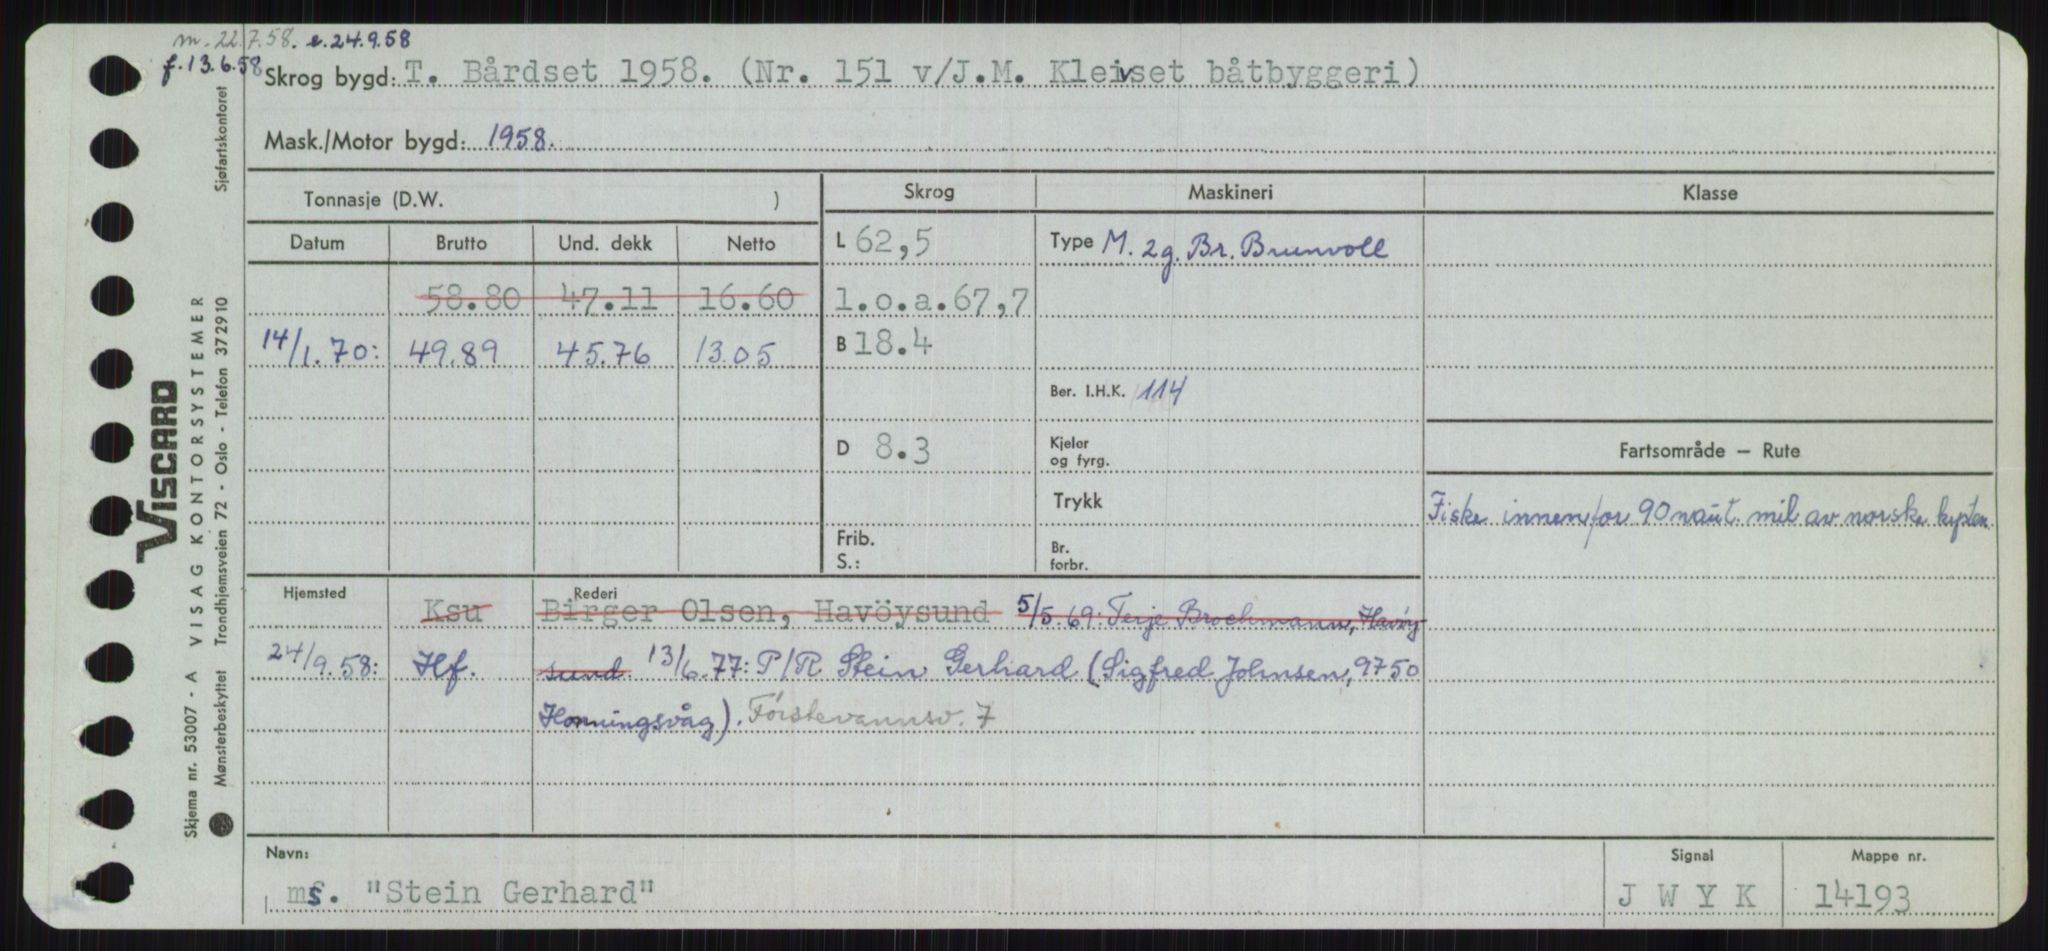 m. 22.7.58. e.24.9.58
f.13.6.58
Skrog bygd: T. Bårdset 1958. (Nr. 151 v/J.M. Kleivset båtbyggeri)
Mask./Motor bygd: 1958.
Tonnasje (D.W. ) Skrog Maskineri Klasse
Datum Brutto Und. dekk Netto L 62,5 Type M. 2g. Br. Brunvoll
58.80 47.11 16.60 l.o.a. 67,7
14/1.70: 49.89 45.76 13.05 B 18.4
Ber. I.H.K. 114
D 8.3 Kjeler og fyrg. Fartsområde – Rute
Trykk Fiske innenfor 90 naut. mil av norske kysten.
Frib.
S.: Br. forbr.
Hjemsted Rederi
Ksu Birger Olsen, Havöysund 5/5.69: Terje Brochmann, Havöy
24/9.58: Hf. sund. 13/6.77: P/R Stein Gerhard (Sigfred Johnsen, 9750
Honningsvåg). Førstevannsv. 7
Navn: Signal Mappe nr.
ms. "Stein Gerhard" J W Y K 14193
VISCARD
VISAG KONTORSYSTEMER Sjøfartskontoret
Skjema nr. 53007 - A
Mønsterbeskyttet Trondhjemsveien 72 - Oslo - Telefon 372910